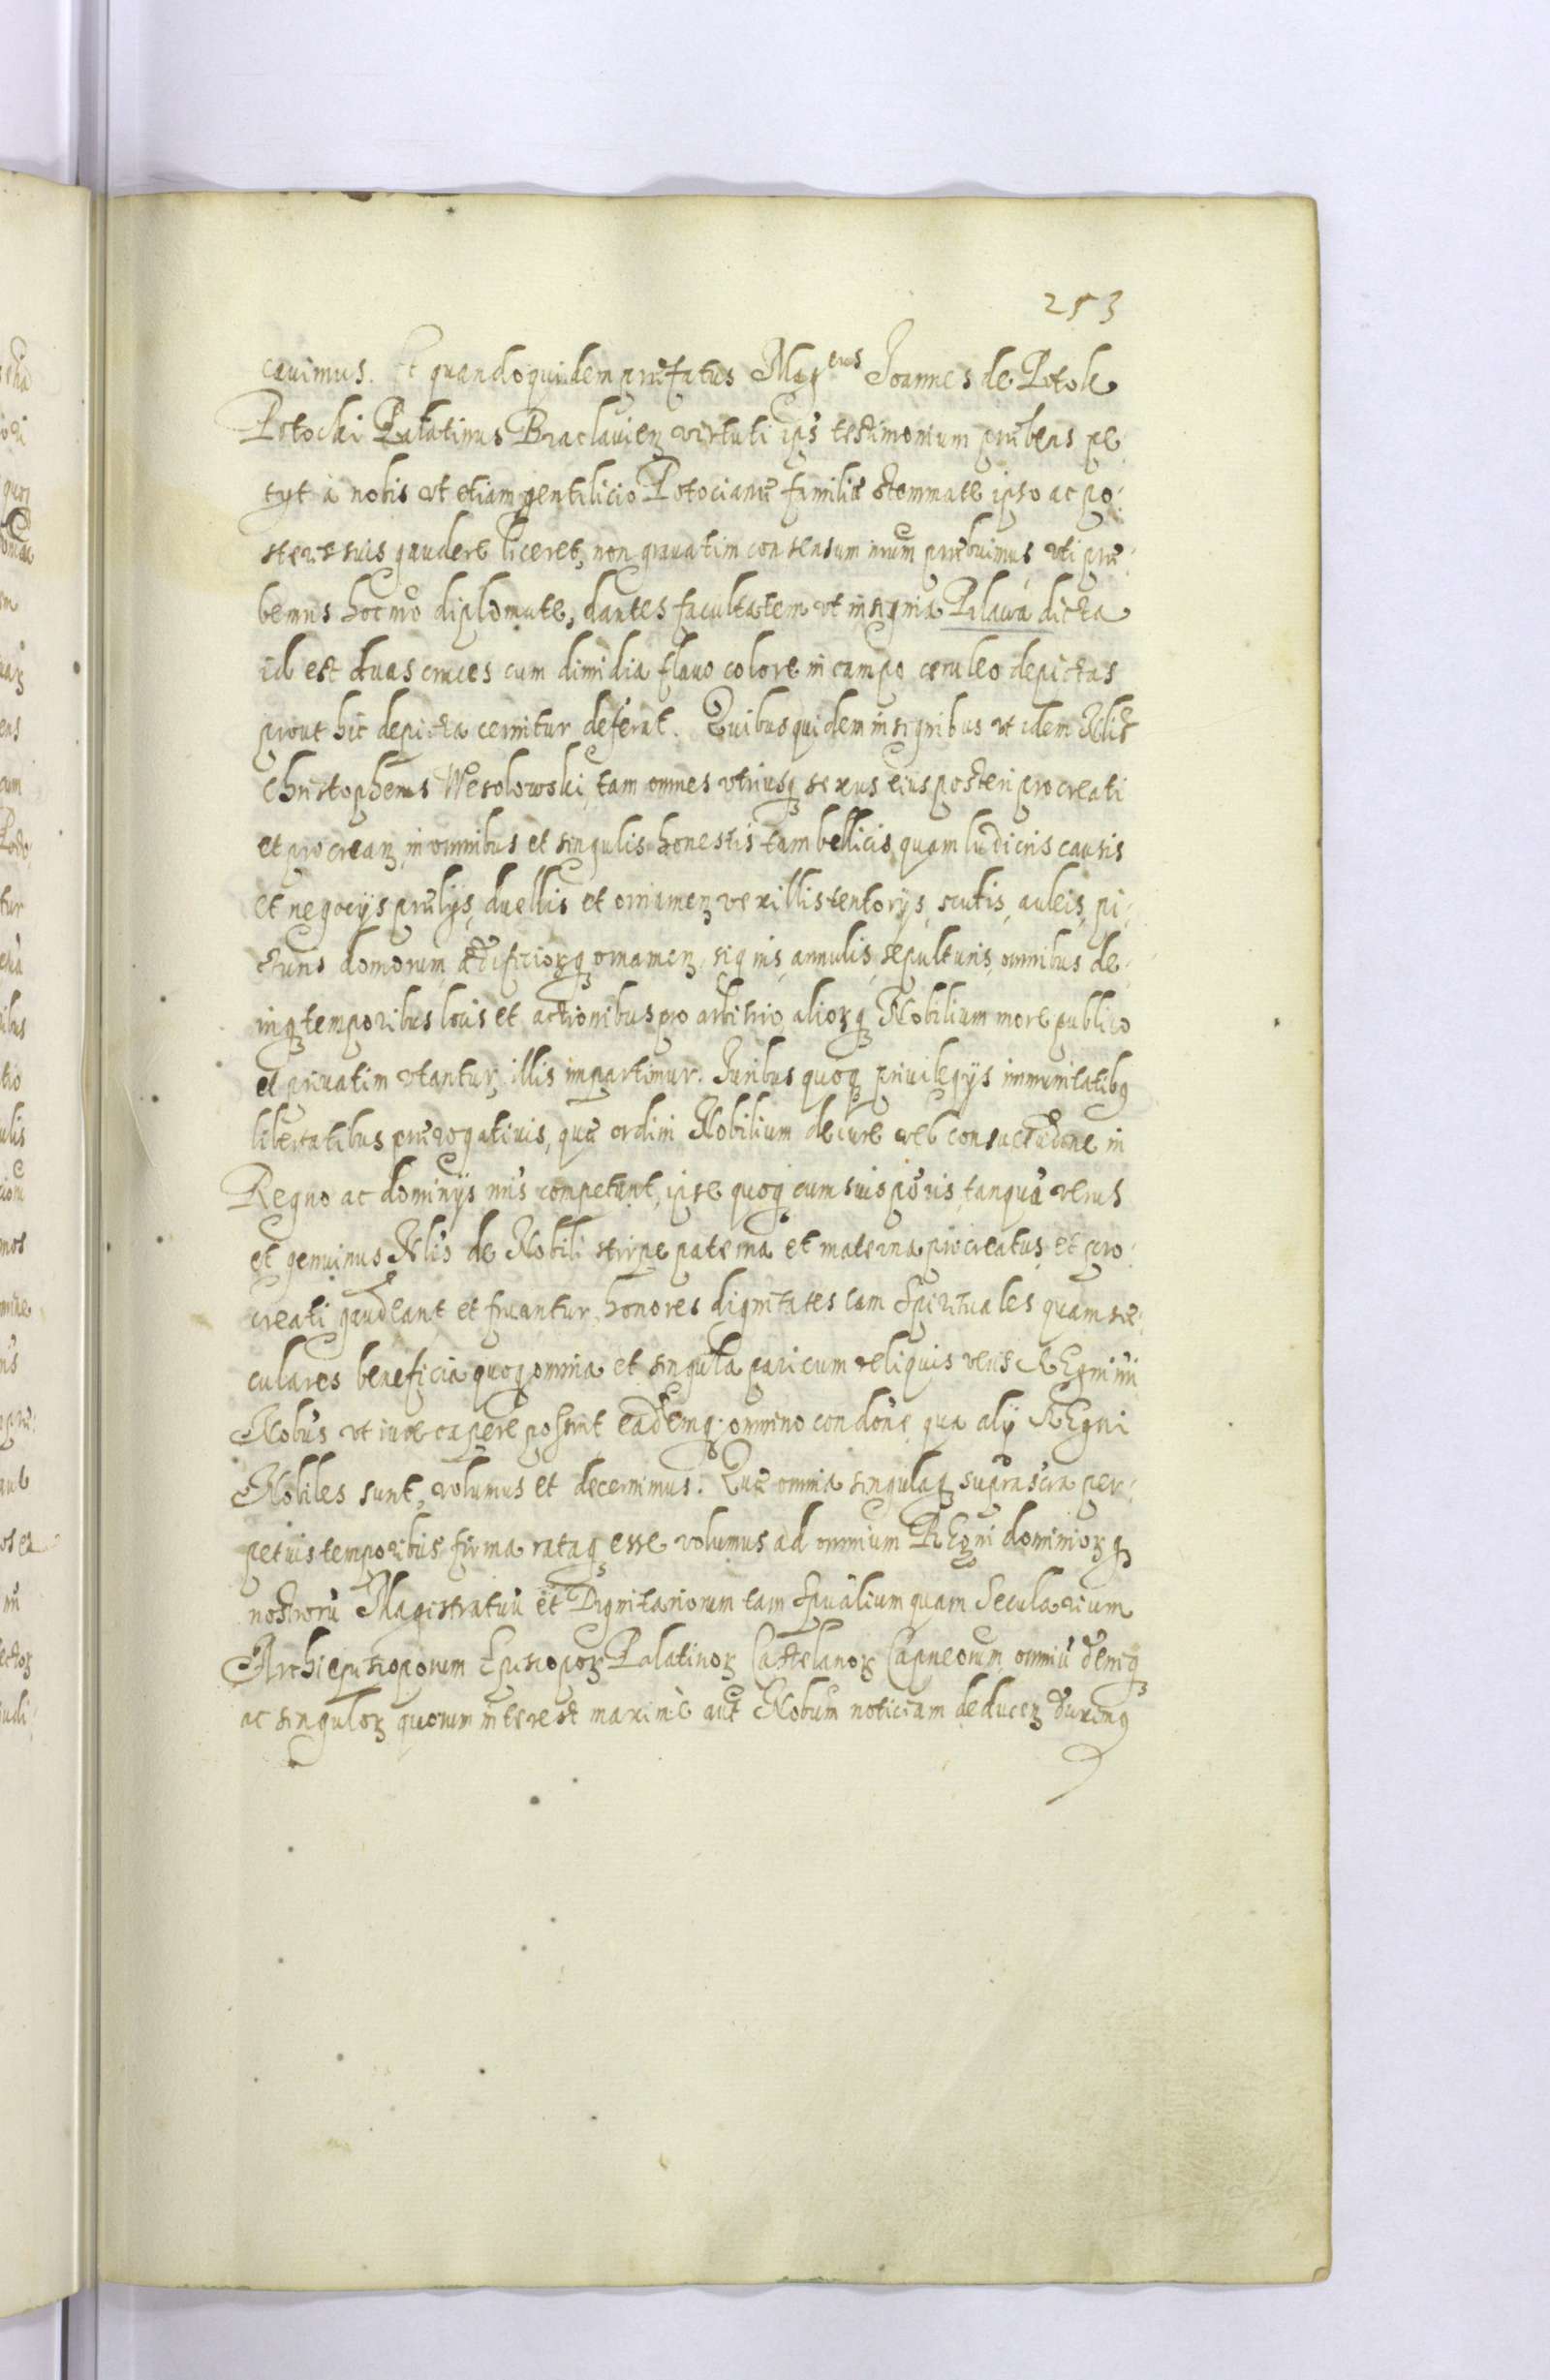 253
cauimus. Et quandoquidem præfatus Mag^cus Joannes de Potok
Potocki Palatinus Braclauien virtuti ips testimonium præbens pe
tyt à nobis vt etiam gentilicio Potocianæ familiæ stemmate ipso ac po:
steris suis gaudere liceret, non grauatim consensum nrum præbuimus, vti præ:
bemus hoc nro diplomate, dantes facultatem vt insignia Pilawa dicta
id est duas cruces cum dimidia flauo colore in campo cæruleo depictas
prout hic depicta cernitur deferat. Quibus quidem insignibus vt idem Nlis
Christopherus Wesolowski, tam omnes vtriusq sexus eius posteri procreati
et procrean, in omnibus et singulis honestis tam bellicis quam ludicris causis
et negocijs prælijs, duellis et ornamen vexillis tentorijs, scutis, auleis, pi:
cturis domorum ædificiorq ornamen, signis, annulis, sepulturis, omnibus de:
niq temporibus locis et actionibus pro arbitrio aliorq Nobilium more publico
et priuatim vtantur, illis impartimur. Juribus quoq priuilegijs immunitatibq
libertatibus prærogatiuis, quæ ordini Nobilium de iure vel consuetudine in
Regno ac dominijs nris competunt, ipse quoq cum suis poris, tanquã verus
et genuinus Nlis de Nobili stirpe paterna et materna procreatus, et pro:
creati gaudeant et fruantur, honores dignitates tam Spirituales quam se:
culares beneficia quoq omnia et singula pari cum reliquis veris REgni nri
Nobus vt iure capere possint eademq omnino condone qua alij REgni
Nobiles sunt, volumus et decernimus. Quæ omnia singulaq suprascra per:
petuis temporibus firma rataq esse volumus ad omnium REgni dominiorq
nostrorũ Magistratuũ et Dignitariorum tam Spualium quam Secularium
Archiepiscoporum Episcopor Palatinor Castelanor Capneorum omniũ deniq
ac singulor quorum interest maxime aut Nobum noticiam deducen duximq